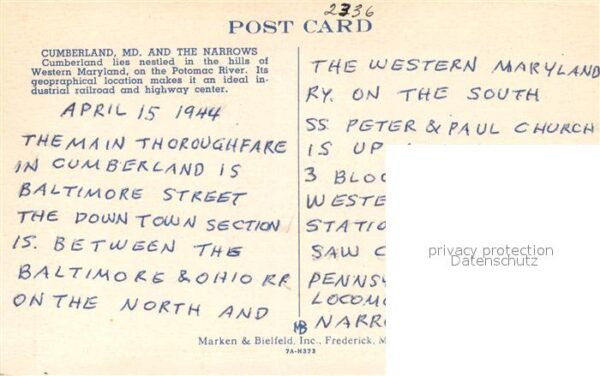 2336
POST CARD
CUMBERLAND, MD. AND THE NARROWS
Cumberland lies nestled in the hills of
Western Maryland, on the Potomac River. Its
geographical location makes it an ideal in-
dustrial railroad and highway center.
APRIL 15 1944
THE MAIN THOROUGHFARE
IN CUMBERLAND IS
BALTIMORE STREET
THE DOWN TOWN SECTION
IS. BETWEEN THE
BALTIMORE & OHIO RR
ON THE NORTH AND
THE WESTERN MARYLAND
RY. ON THE SOUTH
SS PETER & PAUL CHURCH
IS UP
3 BLOC
WESTE
STATIO
SAW C
PENNSY
LOCOMO
NARRO
MB
Marken & Bielfeld, Inc., Frederick, M
7A-H373
privacy protection
Datenschutz